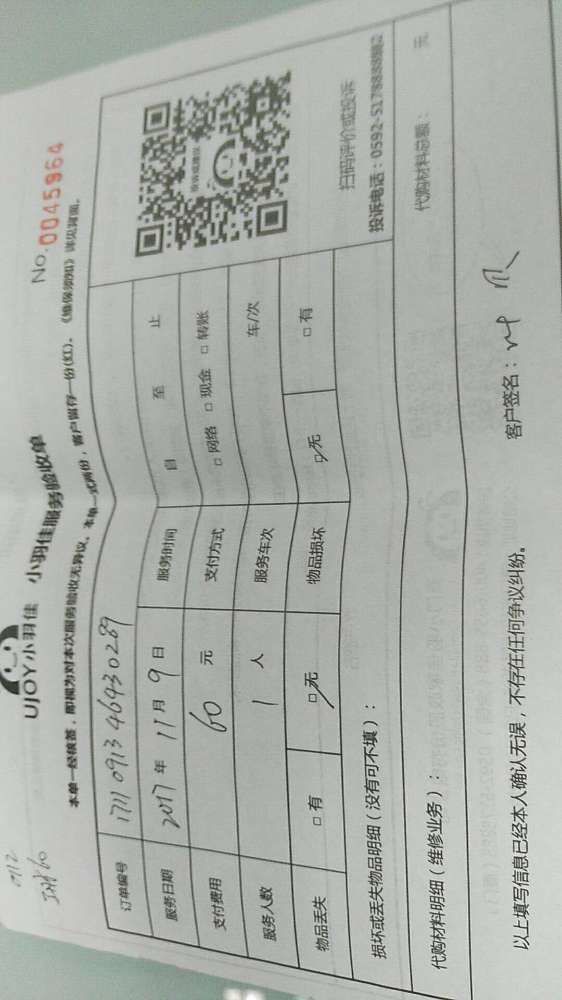 UJOY小羽佳 小羽佳服务验收单
No. 0045964
本单一经核签，即视为对本次服务验收无异议。本单一式两份，客户留存一份(红)。《维保须知》详见背面。
订单编号 1711091346430289
服务日期 2017 年 11 月 9 日 服务时间 自 至 止
支付费用 60 元 支付方式 □ 网络 □ 现金 □ 转账
服务人数 1 人 服务车次 车/次
物品丢失 □ 有 □ 无 物品损坏 □ 无 □ 有
投诉或建议
扫码评价或投诉
损坏或丢失物品明细（没有可不填）：
代购材料明细（维修业务）： 代购材料总额： 元
以上填写信息已经本人确认无误，不存在任何争议纠纷。 客户签名：